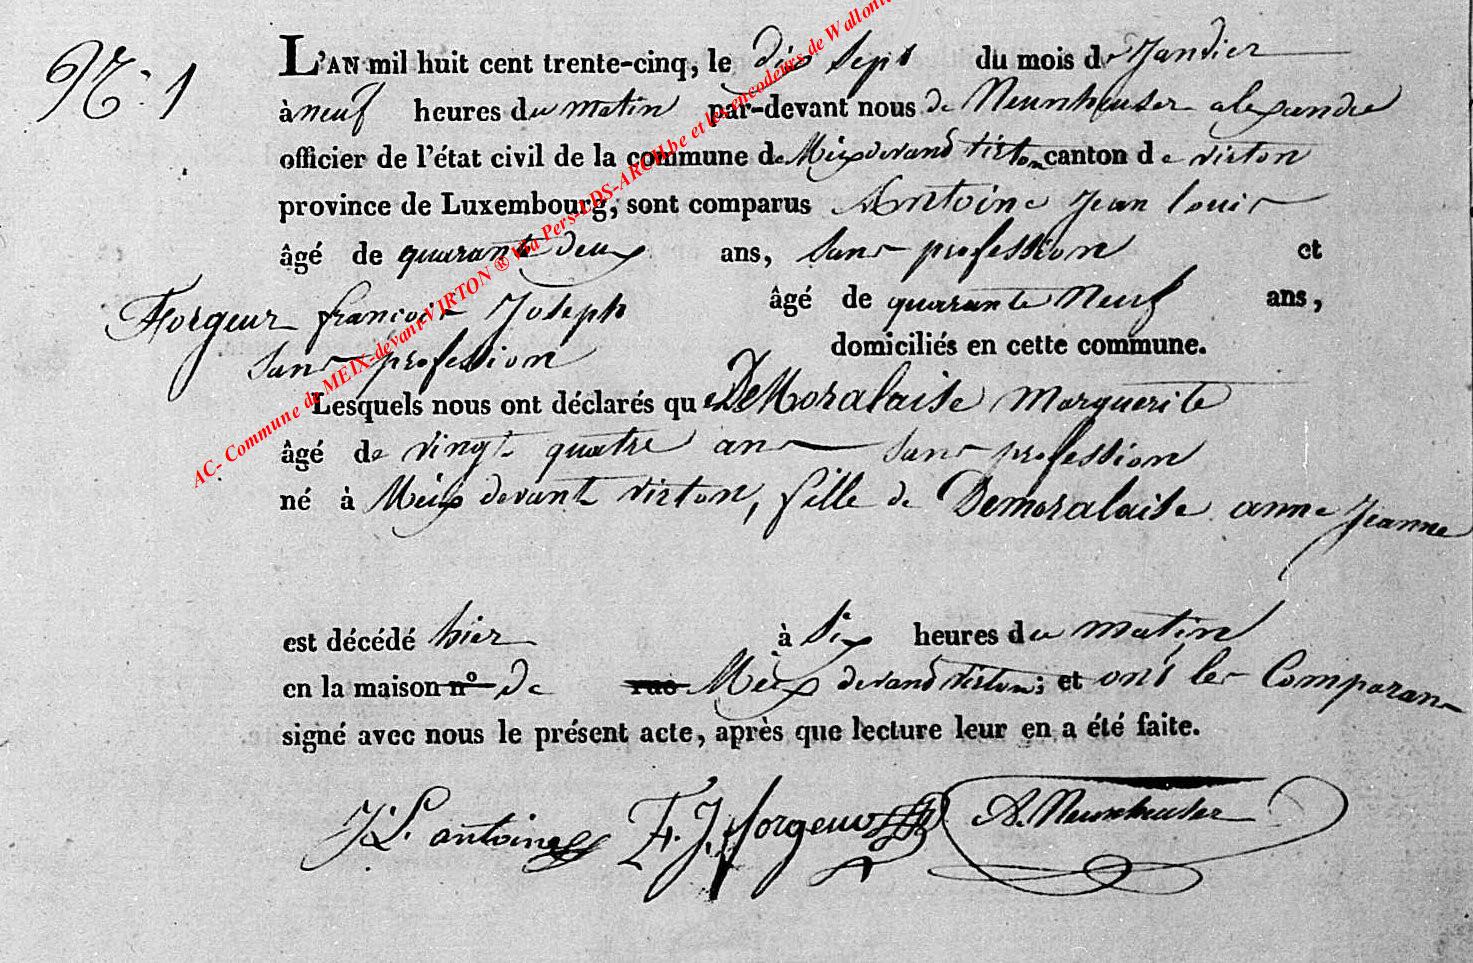 N.º 1
L'AN mil huit cent trente-cinq, le dix sept du mois de Janvier
à neuf heures du matin par-devant nous de Neunheuser alexandre
officier de l'état civil de la commune de Meix devand virton canton de virton
province de Luxembourg, sont comparus Antoine Jean louis
âgé de quarante deux ans, sans profession et
Forgeur françois Joseph âgé de quarante Neuf ans,
sans profession domiciliés en cette commune.
Lesquels nous ont déclarés que DeMoralaise Marguerite
âgé de vingt quatre ans sans profession
né à Meix devant virton, fille de Demoralaise anne Jeanne
est décédé hier à six heures du matin
en la maison nº de rue Meix devand virton; et ont les Comparans
signé avec nous le présent acte, après que lecture leur en a été faite.
J. L. antoine F. J. forgeur A. Neunheuser
AC- Commune de MEIX-devant-VIRTON ® Via Pers-LDS-ARCH.be et les encodeurs de Wallonie